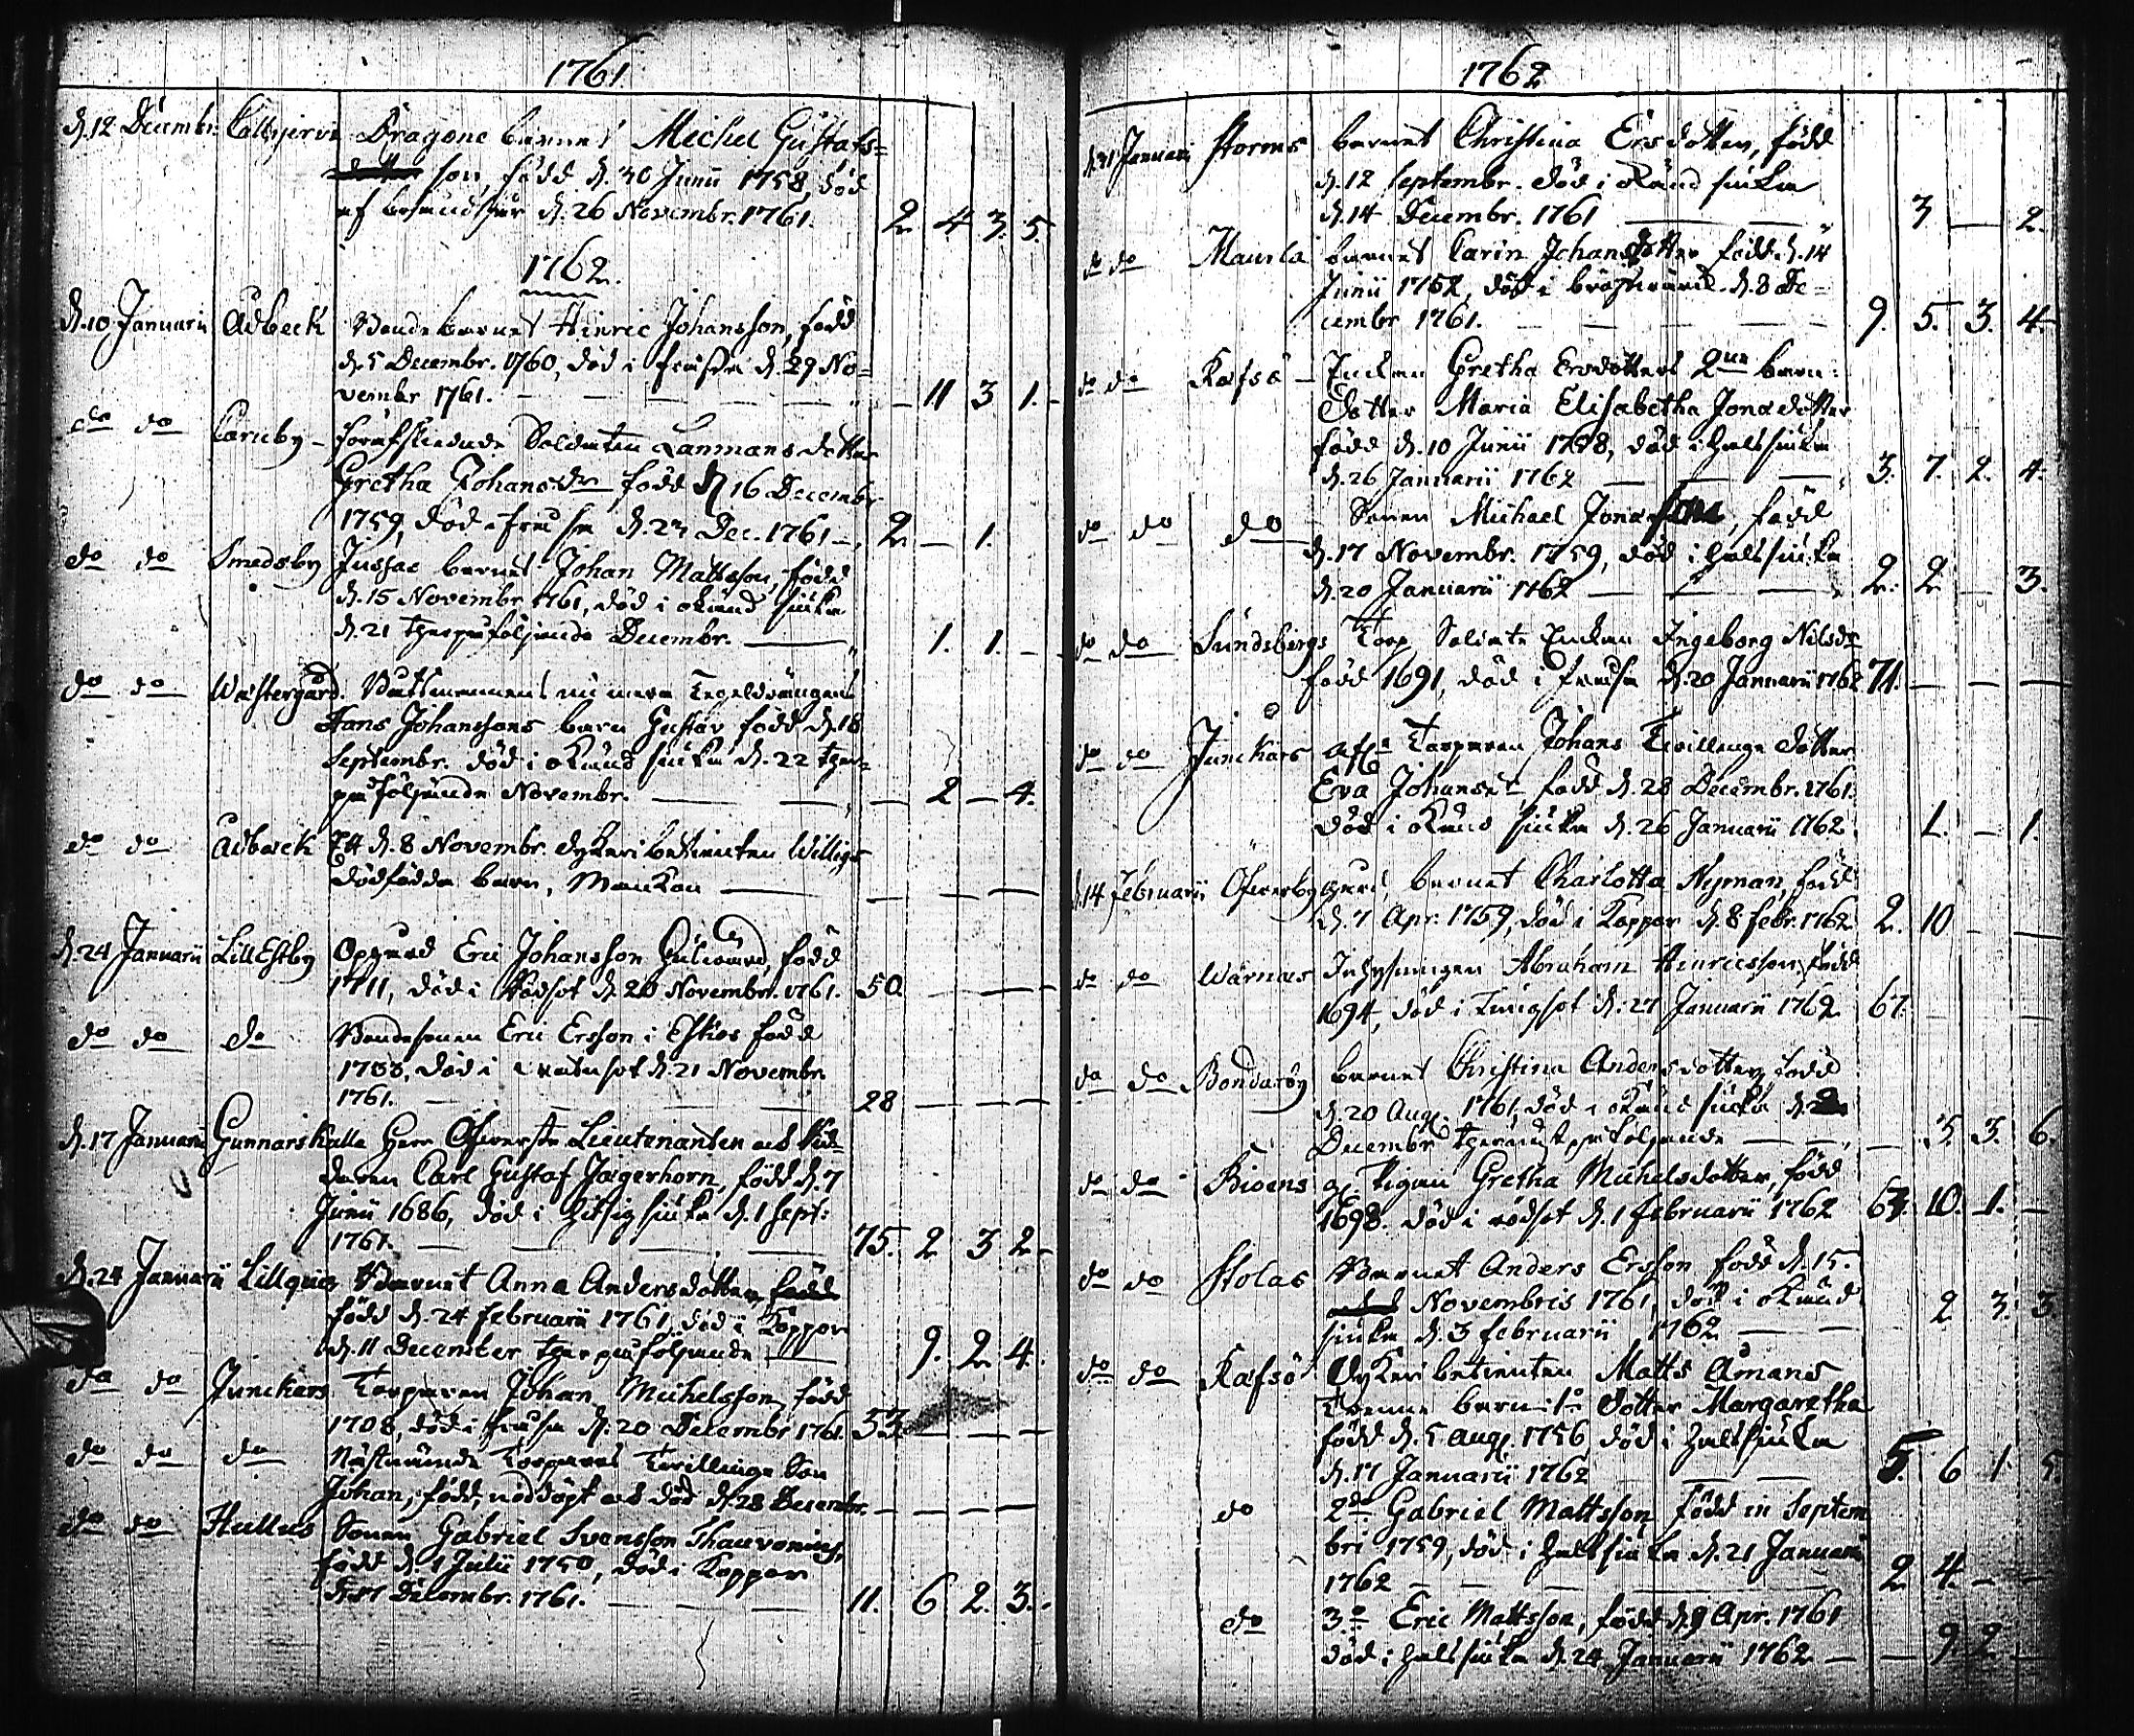 1761.
d. 12 Decembr. Callsjerv Dragone barnet Michel Gustafs=
son, född d. 30 Junii 1758, död
af d. 26 Novembr. 1761. 2 4 3. 5.
1762.
d. 10 Januarii Adbeck Bonde barnet Hinric Johansson, född
d. 5 Decembr. 1760, död i d. 29 No=
vembr 1761. — — — — 11 3 1.
do do Caruby – förafskiedade Soldaten Lanmans dotter
Gretha Johansdr född d. 16 Decembr
1759, död i d. 23 Dec. 1761 – 2 — 1.
do do Smedsby Jussas barnet Johan Mattsson, född
d. 15 Novembr 1761, död i okänd siuka
d. 21 therpåföljande Decembr. — 1. 1. —
do do Wästergård. Båtsmannens nu mera Tegeldrängens
Hans Johanssons barn Gustav född d. 18
Septembr. död i okänd siuka d. 22 ther=
påföljande Novembr. — — — 2 — 4.
do do Adbäck d. 8 Novembr. Willigs
dödfödda barn, — — — —
d. 24 Januarii LillEsby Eric Johansson född
1711, död i Rödsot d. 20 Novembr. 1761. 50 — — —
do do do Bondesonen Eric Ersson i född
1733, död i d. 21 Novembr
1761. — — 28 — — —
d. 17 Januarii Gunnarskulla Herr Öfwerste Lieutenanten och Rid=
daren Carl Gustaf Jägerhorn, född d. 7
Junii 1686, död i hitsig siuka d. 1 Sept:
1761. — — — 75. 2 3 2
d. 24 Januarii Lillquis Barnet Anna Andersdotter
född d. 24 Februarii 1761, död i Koppor
d. 11 December therpåföljande — 9. 2 4.
do do Junckars Torparen Johan Michelsson, född
1708, död i d. 20 Decembr 1761. 53 — — —
do do do Torparens Twillinge Son
Johan, född, nöddöpt och död d. 28 Decembr. — — — —
do do Hullus Sonen Gabriel Svensson Thauvonius,
född d. 1 Julii 1750, död i Koppor
Decembr. 1761. — — — 11. 6 2. 3.
1762
d. 31 Januarii Storms barnet Christina Ersdotter, född
d. 12 Septembr. död i okänd siuka
d. 14 Decembr. 1761 — — 3 — 2.
do do Maurla barnet Carin Johansdotter född d. 14
Junii 1752, död i d. 8 De=
cembr 1761. — — — 9. 5. 3. 4.
do do Rafsö – Enkan Gretha Ersdotters 2ne barn:
Dotter Maria Elisabetha Jonædotter
född d. 10 Junii 1758, död i halssiuka
d. 26 Januarii 1762 — — 3. 7. 2. 4.
do do do – Sonen Michael Jonæson, född
d. 17 Novembr. 1759, död i halssiuka
d. 20 Januarii 1762 — — 2. 2 — 3.
do do Sundsbergs Torp Soldate Enkan Ingeborg Nilsdr
född 1691, död i d. 20 Januarii 1762 71. — — —
do do Junckars Torparen Johans Twillinge dotter
Eva Johansdr, född d. 28 Decembr. 1761.
död i okänd siuka d. 26 Januarii 1762. 1. — 1.
d. 14 Februarii Öfwerby gård, barnet Charlotta Nyman, född
d. 7 Apr. 1759, död i Koppor d. 8 Febr. 1762 2. 10 — —
do do Wärnäs Inhysingen Abraham Henricsson, född
1694, död i d. 27 Januarii 1762 67. — — —
do do Bondaröy barnet Christina Andersdotter, född
d. 20 Aug. 1761, död i okänd siuka d.
Decembr — — 3. 3. 6.
do do Bioens Pigan Gretha Michelsdotter, född
1698. död i rödsot d. 1 Februarii 1762 63. 10. 1. —
do do Stolas Barnet Anders Ersson född d. 15.
Novembris 1761, död i okänd
siuka d. 3 Februarii 1762 — — 2 3. 3
do do Rafsö Matts Åmans
Trenne barn: 1o Dotter Margaretha
född d. 5 Aug. 1756, död i halssiuka
d. 17 Januarii 1762 — — 5. 6 1 5.
do 2do Gabriel Mattsson, född in Septem
bri 1759, död i halssiuka d. 21 Januarii
1762 — — — 2 4. — —
do 3o Eric Mattsson, född d. 9 Apr. 1761
död i halssiuka d. 24 Januarii 1762 — — 9. 2 —